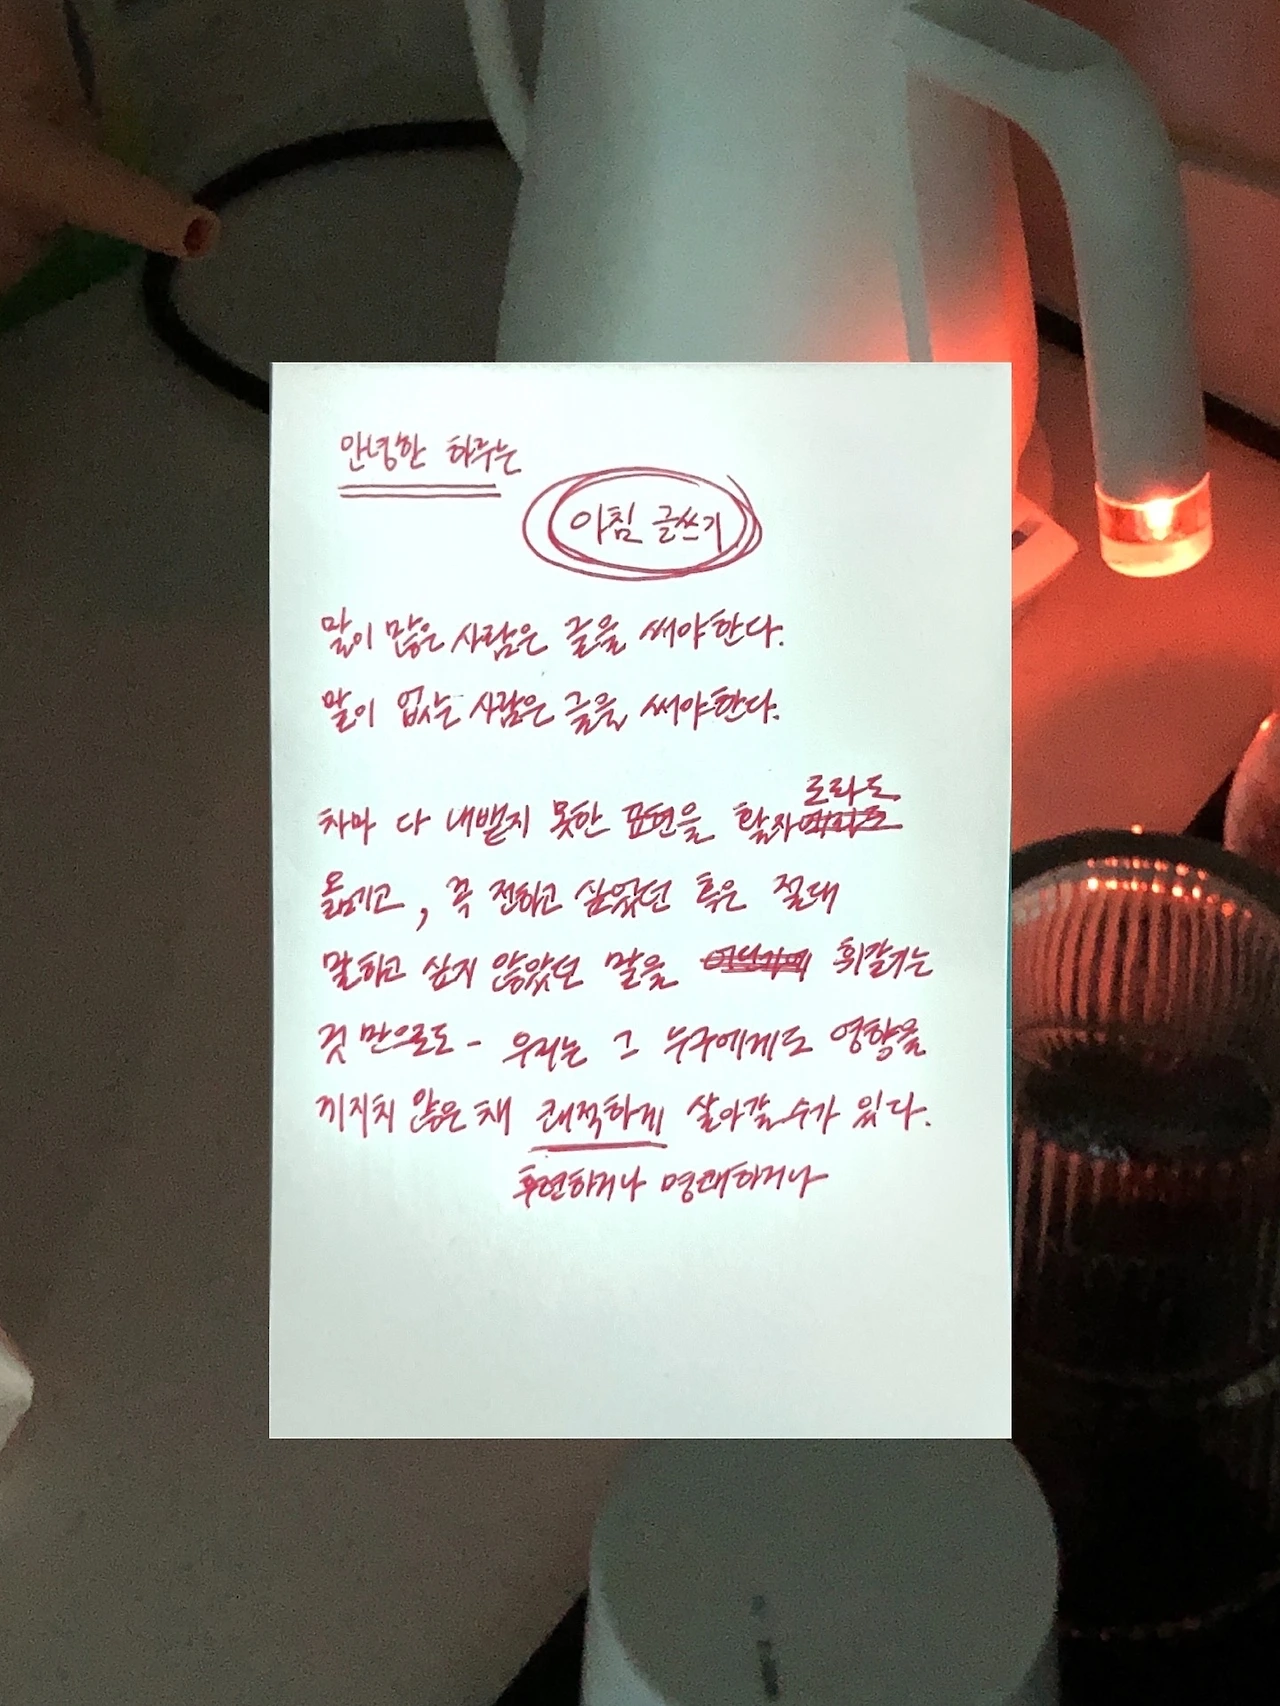 안녕한 하루는
아침 글쓰기
말이 많은 사람은 글을 써야한다.
말이 없는 사람은 글을 써야한다.
로라도
차마 다 내뱉지 못한 표현을 활자
옮기고, 꼭 전하고 싶었던 혹은 절대
말하고 싶지 않았던 말을 휘갈기는
것 만으로도 - 우리는 그 누구에게도 영향을
끼치지 않은 채 쾌적하게 살아갈 수가 있다.
후련하거나 명쾌하거나